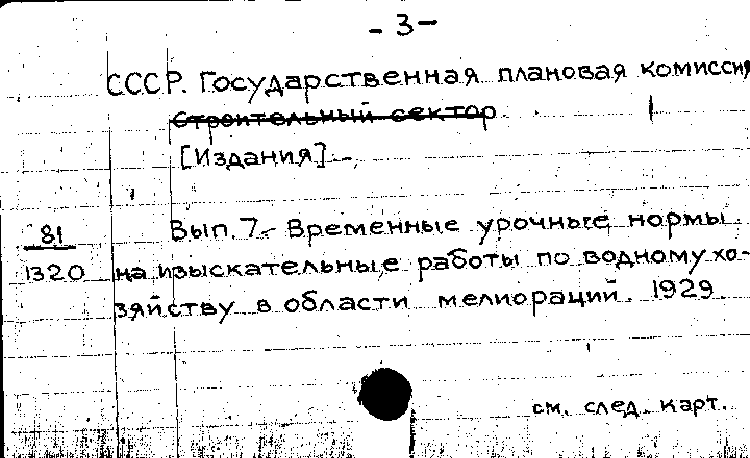 - 3 -
СССР. Государственная плановая комиссия
Строительный сектор
[Издания].-
81
1320
Вып. 7.- Временные урочные нормы
на изыскательные работы по водному хо-
зяйству в области мелиораций. 1929.
см. след. карт.